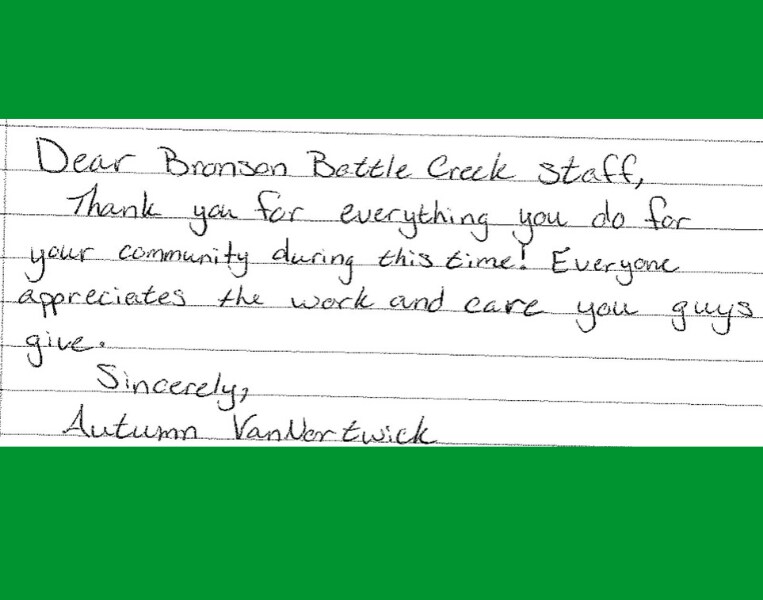 Dear Bronson Battle Creek staff,
Thank you for everything you do for
your community during this time! Everyone
appreciates the work and care you guys
give.
Sincerely,
Autumn VanNortwick